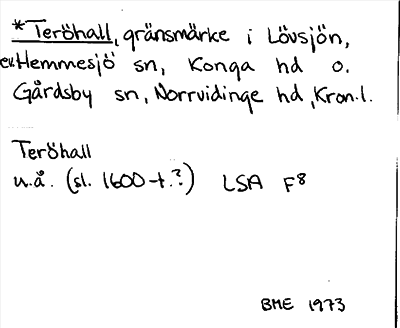 *Teröhall, gränsmärke i Lövsjön,
Hemmesjö sn, Konga hd o.
Gårdsby sn, Norrvidinge hd, Kron.l.
Teröhall
u.å. (sl. 1600-t.?) LSA F8
BME 1973